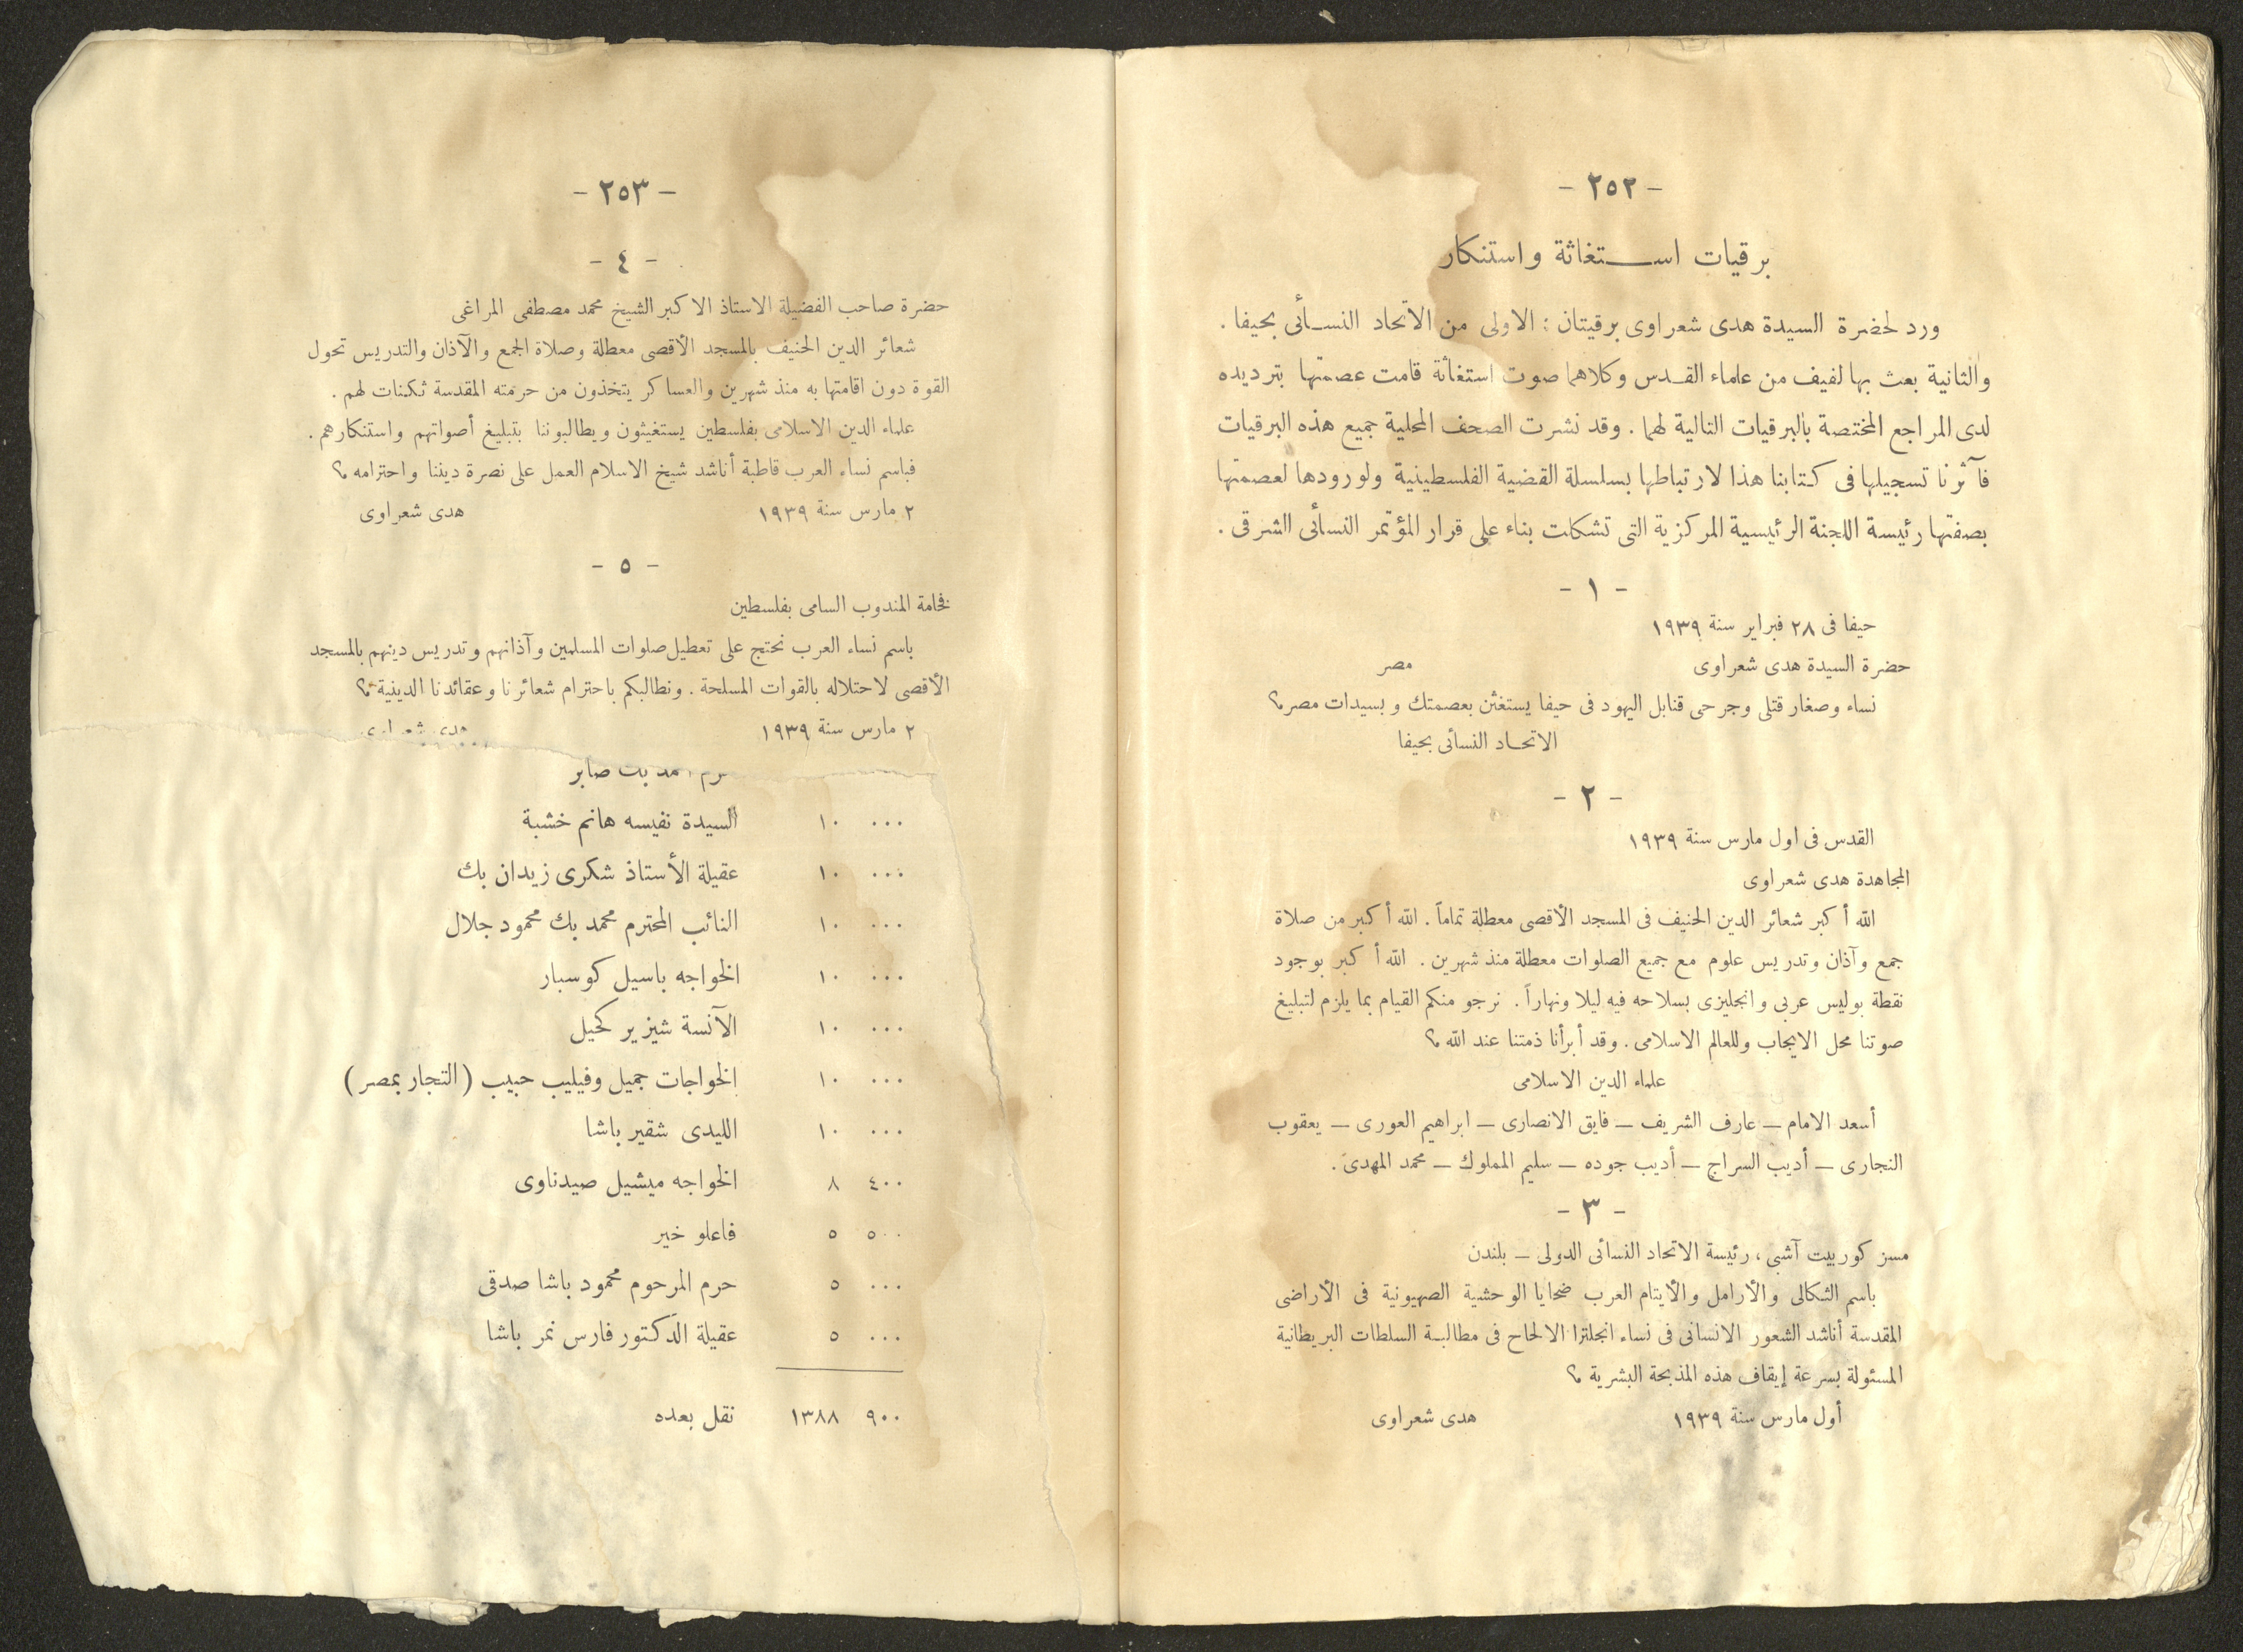 - ٢٥٢ -
برقيات استغاثة واستنكار
ورد لحضرة السيدة هدى شعراوى برقيتان : الاولى من الاتحاد النسائى بحيفا .
والثانية بعث بها لفيف من علماء القدس وكلاهما صوت استغاثة قامت عصمتها بترديده
لدى المراجع المختصة بالبرقيات التالية لهما . وقد نشرت الصحف المحلية جميع هذه البرقيات
فآثرنا تسجيلها فى كتابنا هذا لارتباطها بسلسلة القضية الفلسطينية ولورودها لعصمتها
بصفتها رئيسة اللجنة الرئيسية المركزية التى تشكلت بناء على قرار المؤتمر النسائى الشرقى .
- ١ -
حيفا فى ٢٨ فبراير سنة ١٩٣٩
حضرة السيدة هدى شعراوى مصر
نساء وصغار قتلى وجرحى قنابل اليهود فى حيفا يستغثن بعصمتك وبسيدات مصر؟
الاتحاد النسائى بحيفا
- ٢ -
القدس فى اول مارس سنة ١٩٣٩
المجاهدة هدى شعراوى
الله أكبر شعائر الدين الحنيف فى المسجد الأقصى معطلة تماماً . الله أكبر من صلاة
جمع وآذان وتدريس علوم مع جميع الصلوات معطلة منذ شهرين . الله أكبر بوجود
نقطة بوليس عربى وانجليزى بسلاحه فيه ليلا ونهاراً . نرجو منكم القيام بما يلزم لتبليغ
صوتنا محل الايجاب وللعالم الاسلامى . وقد أبرأنا ذمتنا عند الله ؟
علماء الدين الاسلامى
أسعد الامام — عارف الشريف — فايق الانصارى — ابراهيم العورى — يعقوب
النجارى — أديب السراج — أديب جوده — سليم المملوك — محمد المهدى .
- ٣ -
مسز كوربيت آشبى ، رئيسة الاتحاد النسائى الدولى — بلندن
باسم الثكالى والأرامل والأيتام العرب ضحايا الوحشية الصهيونية فى الأراضى
المقدسة أناشد الشعور الانسانى فى نساء انجلترا الالحاح فى مطالبة السلطات البريطانية
المسئولة بسرعة إيقاف هذه المذبحة البشرية ؟
أول مارس سنة ١٩٣٩ هدى شعراوى
- ٢٥٣ -
- ٤ -
حضرة صاحب الفضيلة الاستاذ الاكبر الشيخ محمد مصطفى المراغى
شعائر الدين الحنيف بالمسجد الأقصى معطلة وصلاة الجمع والآذان والتدريس تحول
القوة دون اقامتها به منذ شهرين والعساكر يتخذون من حرمته المقدسة ثكنات لهم .
علماء الدين الاسلامى بفلسطين يستغيثون ويطالبوننا بتبليغ أصواتهم واستنكارهم .
فباسم نساء العرب قاطبة أناشد شيخ الاسلام العمل على نصرة ديننا واحترامه ؟
٢ مارس سنة ١٩٣٩ هدى شعراوى
- ٥ -
فخامة المندوب السامى بفلسطين
باسم نساء العرب نحتج على تعطيل صلوات المسلمين وآذانهم وتدريس دينهم بالمسجد
الأقصى لاحتلاله بالقوات المسلحة . ونطالبكم باحترام شعائرنا وعقائدنا الدينية ؟
٢ مارس سنة ١٩٣٩ هدى شعراوى
بك صابر
٠٠٠ ١٠ السيدة نفيسه هانم خشبة
٠٠٠ ١٠ عقيلة الأستاذ شكرى زيدان بك
٠٠٠ ١٠ النائب المحترم محمد بك محمود جلال
٠٠٠ ١٠ الخواجه باسيل كوسبار
٠٠٠ ١٠ الآنسة شيزير كحيل
٠٠٠ ١٠ الخواجات جميل وفيليب حبيب (التجار بمصر)
٠٠٠ ١٠ الليدى شقير باشا
٤٠٠ ٨ الخواجه ميشيل صيدناوى
٥٠٠ ٥ فاعلو خير
٠٠٠ ٥ حرم المرحوم محمود باشا صدقى
٠٠٠ ٥ عقيلة الدكتور فارس نمر باشا
٩٠٠ ١٣٨٨ نقل بعده